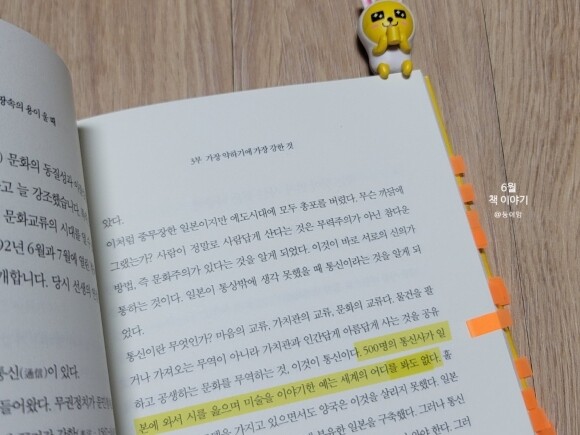 장속의 용이 울 때
) 문화의 동질성과
늘 강조했습니다.
문화교류의 시대를
02년 6월과 7월에 열린
개합니다. 당시 선생의
통신(通信)이 있다.
들어왔다. 무권정치가
5부 가장 약하기에 가장 강한 것
았다.
이처럼 중무장한 일본이지만 에도시대에 모두 총포를 버렸다. 무슨 까닭에
그랬는가? 사람이 정말로 사람답게 산다는 것은 무력주의가 아닌 참다운
방법, 즉 문화주의가 있다는 것을 알게 되었다. 이것이 바로 서로의 신의가
통하는 것이다. 일본이 통상밖에 생각 못했을 때 통신이라는 것을 알게 되
었다.
통신이란 무엇인가? 마음의 교류, 가치관의 교류, 문화의 교류다. 물건을 팔
거나 가져오는 무역이 아니라 가치관과 인간답게 아름답게 사는 것을 공유
하고 공생하는 문화를 무역하는 것, 이것이 통신이다. 500명의 통신사가 일
본에 와서 시를 읊으며 미술을 이야기한 예는 세계의 어디를 봐도 없다. 훌
대을 가지고 있으면서도 양국은 이것을 살리지 못했다. 일본
부유한 일본을 구축했다. 그러나 통신
야 한다. 그러
6월
책 이야기
@동이맘